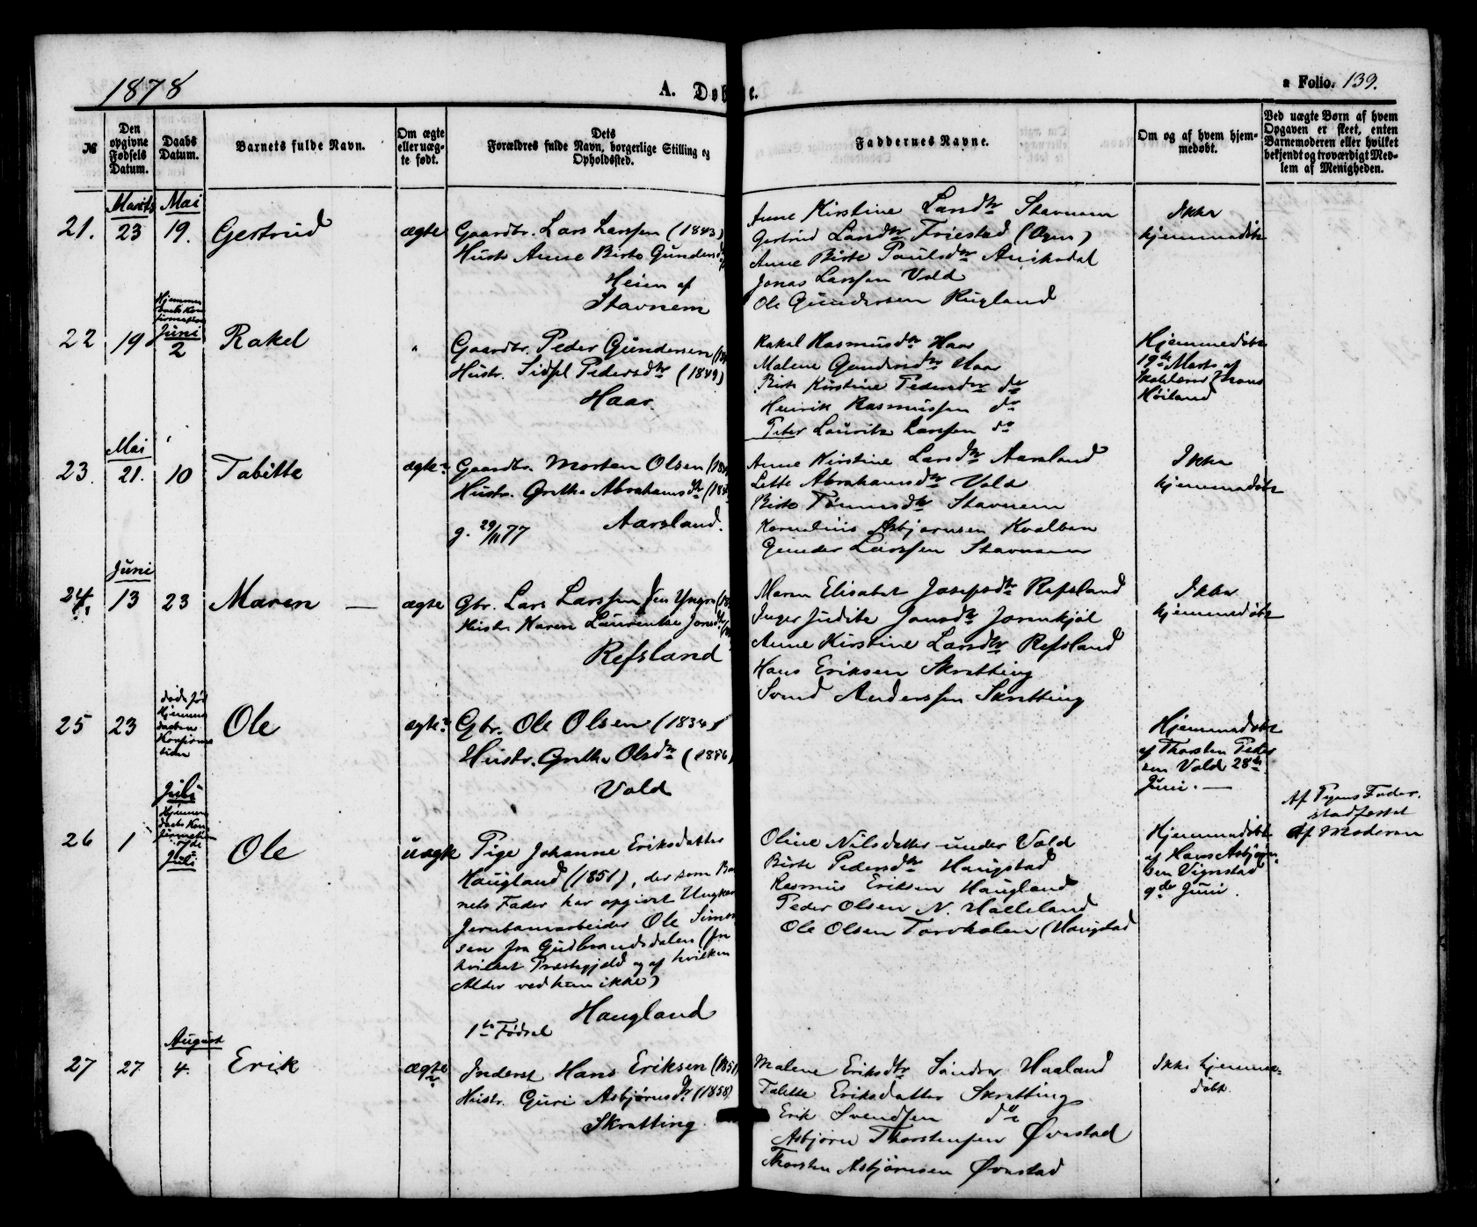 1878
A. Døbte.
a Folio. 139.
№
Den opgivne Fødsels Datum.
Daabs Datum.
Barnets fulde Navn.
Om ægte eller uægte født.
Dets Forældres fulde Navn, borgerlige Stilling og Opholdssted.
Faddernes Navne.
Om og af hvem hjemmedøbt.
Ved uægte Børn af hvem Opgaven er skeet, enten Barnemoderen eller hvilket bekjendt og troværdigt Medlem af Menigheden.
Marts Mai
21. 23 19. Gertrud ægte
Gaardbr. Lars Larssen (1843)
Hustr. Anne Birte Gundersd
Heien af
Stavnem
Anne Kirstine Larsdtr Stavnem
Gertrud Larsdtr Friestad (Ogn)
Anne Birte Paulsdtr Aniksdal
Jonas Larssen Vold
Ole Gundersen Rugland
Ikke
hjemmedøbt
Hjemmedaab Konfirmation
Juni
22 19 2 Rakel "
Gaardbr. Peder Gundersen
Hustr. Sidsel Pedersdtr (1849)
Haar.
Rakel Rasmusdtr Haar
Malene Gundersdtr Haar
Birte Kirstine Pedersdtr do
Henrik Rasmussen do
Peter Lauritz Larssen do
Hjemmedøbt
19de Marts af
Skolelærer
Høiland
Mai
23. 21. 10 Tabitte ægte
Gaardbr. Morten Olsen
Hustr. Grethe Abrahamsdtr
g. 29/11 77 Aarsland.
Anne Kirstine Larsdtr Aarsland
Lette Abrahamsdtr Vold
Birte Tønnesdtr Stavnem
Kornelius Asbjørnsen Kvalben
Gunder Larssen Stavnem
Ikke
hjemmedøbt
Juni
24. 13 23 Maren — ægte
Gbr. Lars Larssen den Yngre
Hustr. Karen Laurentse Jonsdtr
Refsland
Maren Elisabet Josefsdtr Refsland
Inger Judite Jonsdtr
Anne Kirstine Larsdtr Refsland
Hans Eriksen Skretting
Svend Anderssen Skretting
Ikke
hjemmedøbt
døde før
Hjemme
daabens
Konfirma
tion
25 23 Ole ægte
Gbr. Ole Olsen (1834)
Hustr. Grethe Olsdtr
Vold
Hjemmedøbt
af Thorsten Peder
sen Vold 28de
Juni. —
Juli
Hjemme
daabs Kon
firmation
Juli
26 1 Ole uægte
Pige Johanne Eriksdatter
Haugland (1851), der som Bar
nets Fader har opgivet Ungkar
Jernbanearbeider Ole Simon
sen fra Gudbrandsdalen (fra
hvilket Præstegjeld og af hvilken
Alder ved hun ikke)
Haugland
1ste Fødsel
Oline Nilsdatter under Vold
Birte Pedersdtr Haugstad
Rasmus Eriksen Haugland
Peder Olsen N. Hælleland
Ole Olsen Torvholen (Haugstad
Hjemmedøbt
af Hans Asbjørn
sen Vignstad
Juni.
Af Pigens Fader.
stadfæstet
af Moderen
August
27 27 4. Erik ægte
Inderst Hans Eriksen (1851)
Hustr. Guri Asbjørnsdtr (1858)
Skretting.
Malene Eriksdtr Søndre Haaland
Tabitte Eriksdatter Skretting
Erik Svendsen do
Asbjørn Thorstensen Øvestad
Thorsten Asbjørnsen Øvestad
Ikke hjemme
døbt.